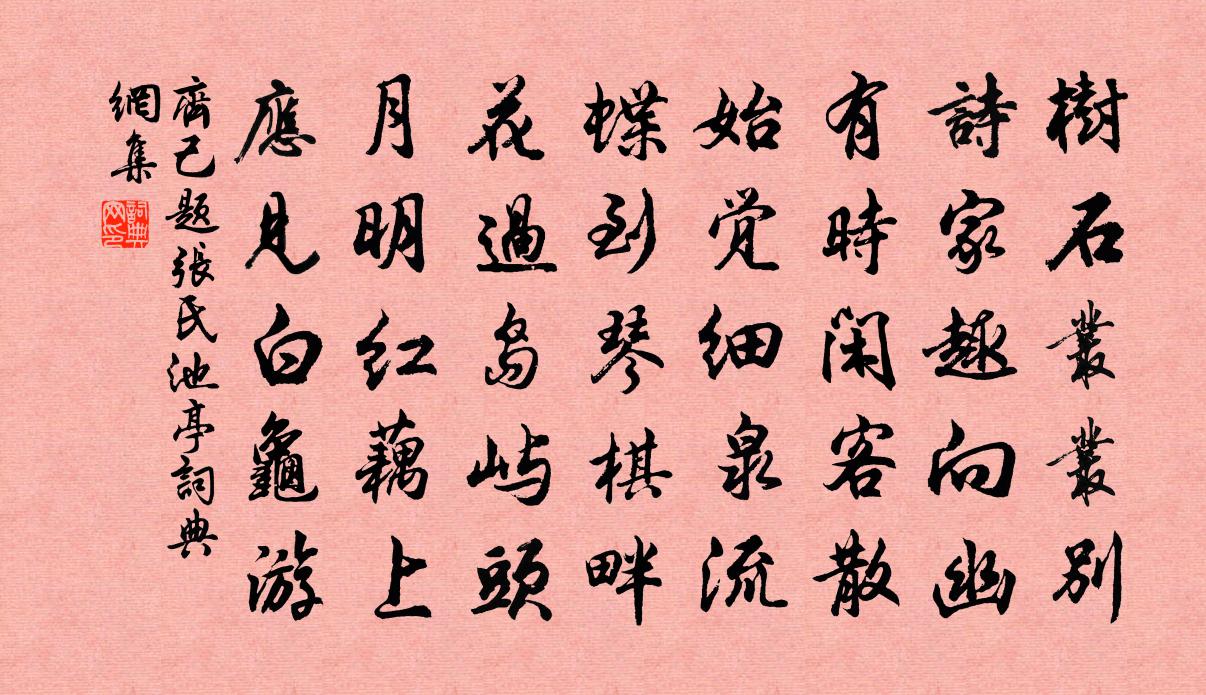 樹石叢叢別
詩家趣向幽
有時閑客散
始觉細泉流
蝶到琴棋畔
花過島嶼頭
月明紅藕上
應見白龜游
齊己题張氏池亭詞典
網集
詞典
网印